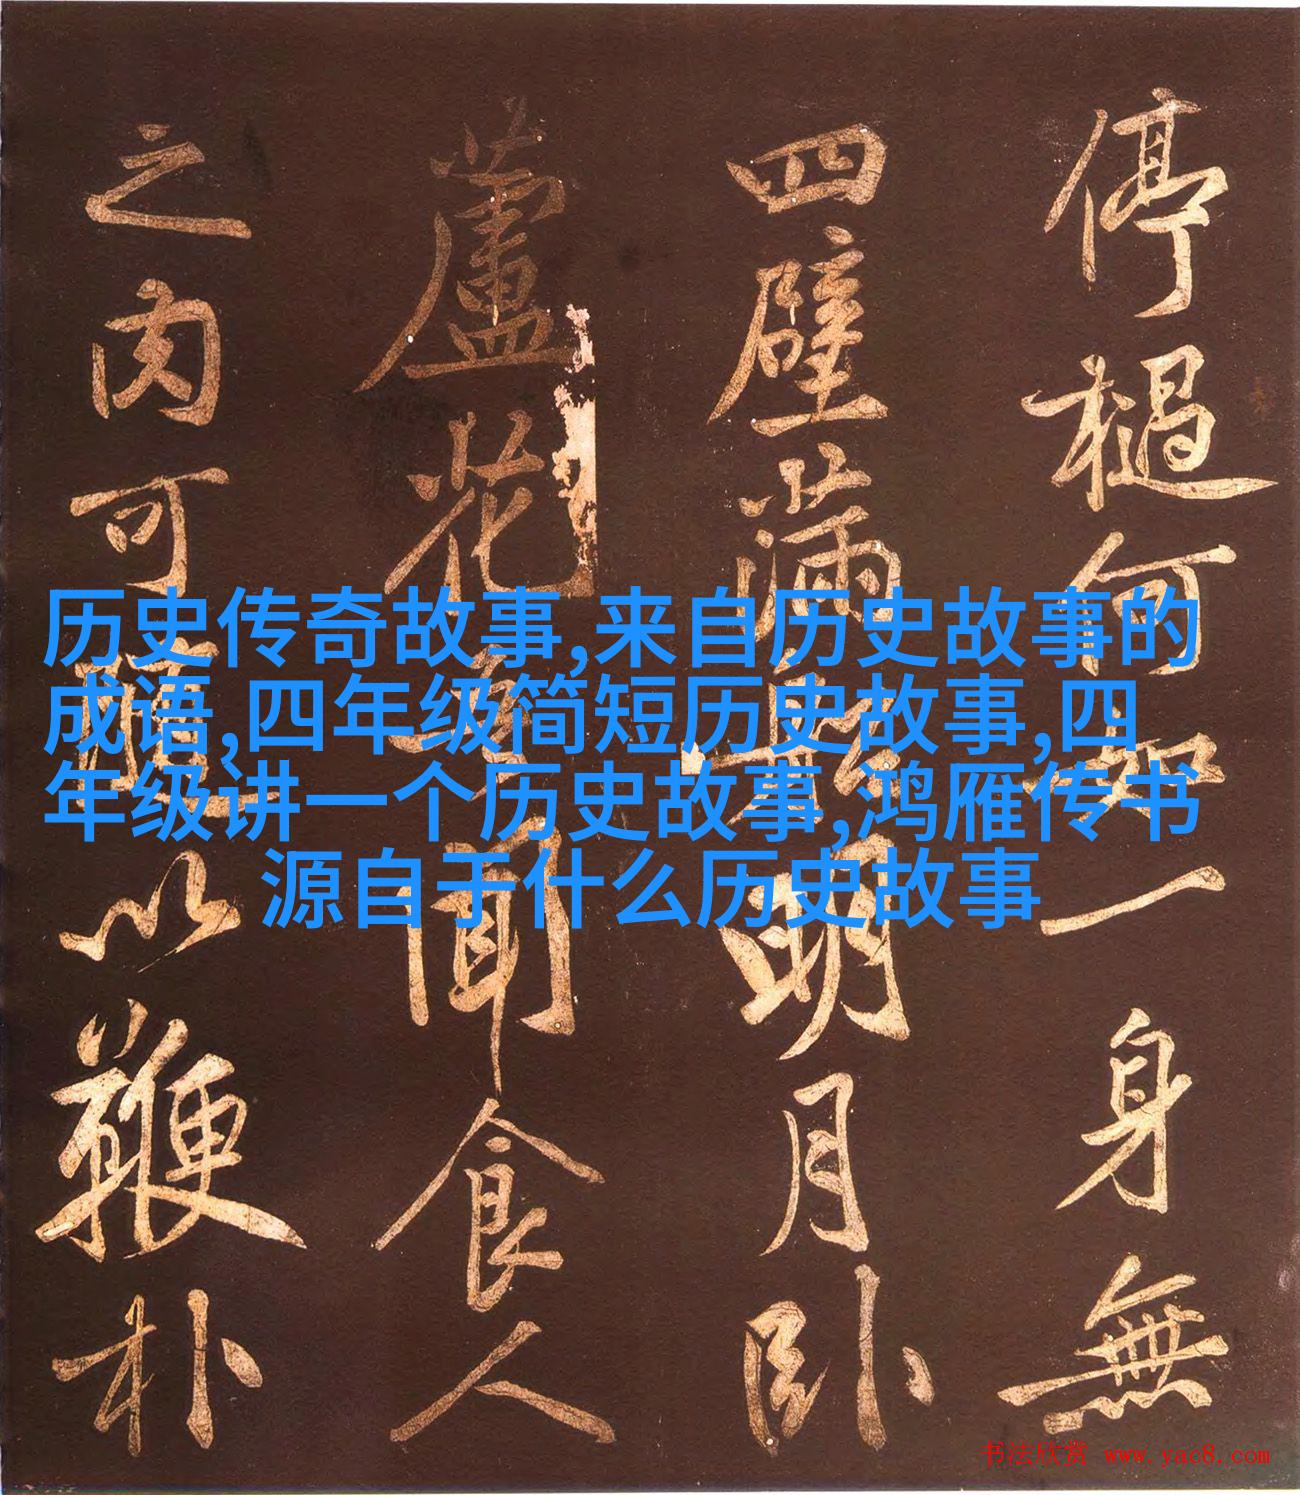 停檛何如一身無
四壁滿明月臥
蘆花聞食人
之肉可隨以鞭朴
历史传奇故事,来自历史故事的
成语,四年级简短历史故事,四
年级讲一个历史故事,鸿雁传书
源自于什么历史故事
书法欣赏 www.yac8.com